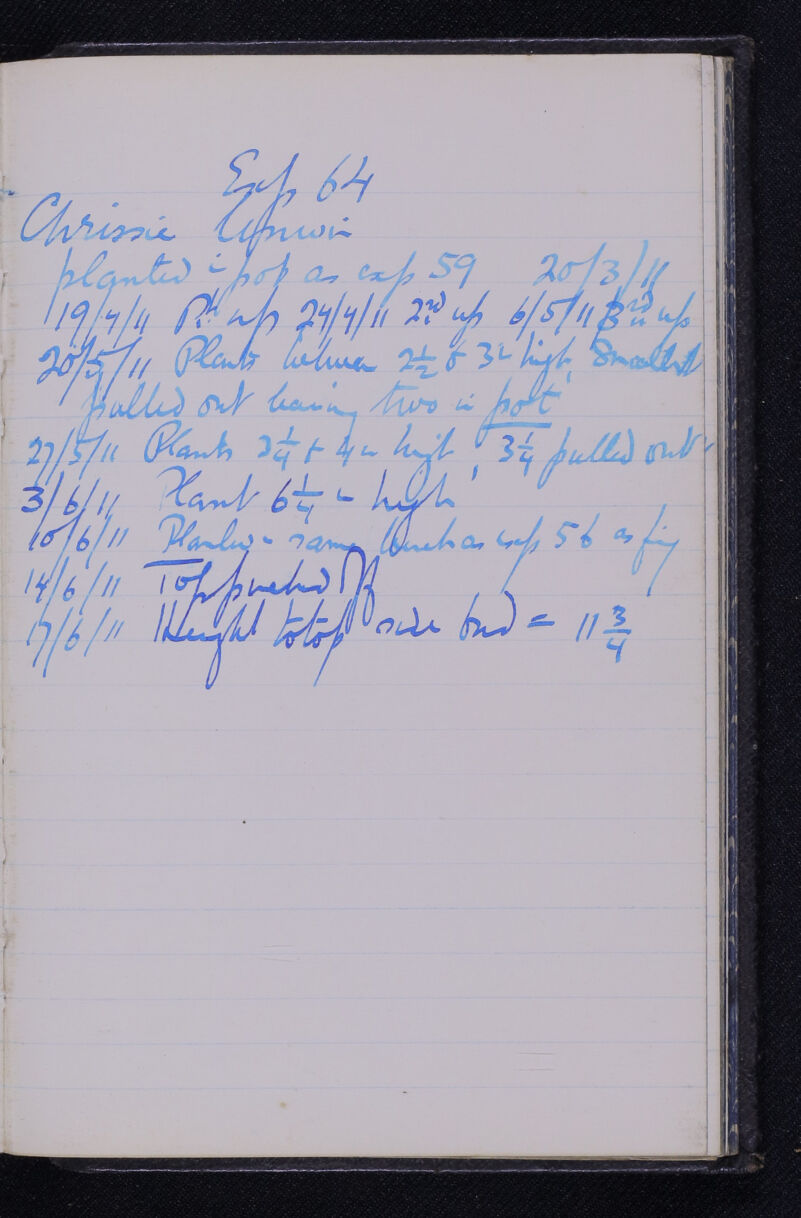 Exp 64
Chrissie Unwin
planted in pot as exp 59 20/3/11
19/4/11 Pt. up 24/4/11 2nd up 6/5/11 3rd up
20/5/11 Plants between 2½ & 3" high, Smallest
pulled out leaving two in pot
27/5/11 Plants 3¼ & 4" high, 3¼ pulled out
3/6/11 Plant 6¼" high
10/6/11 Planted in same bench as exp 56 as fig
14/6/11 Top pinched off
17/6/11 Height to top side bud = 11¾